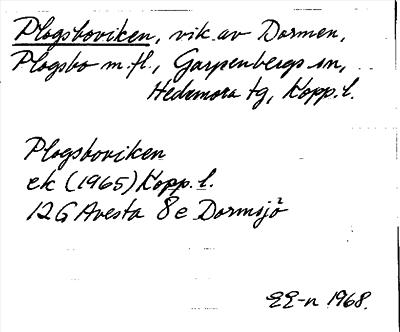 Plogsboviken, vik av Dormen,
Plogsbo m.fl., Garpenbergs sn,
Hedemora tg, Kopp. l.
Plogsboviken
ek (1965) Kopp. l.
12G Avesta 8e Dormsjö
EE-n 1968.